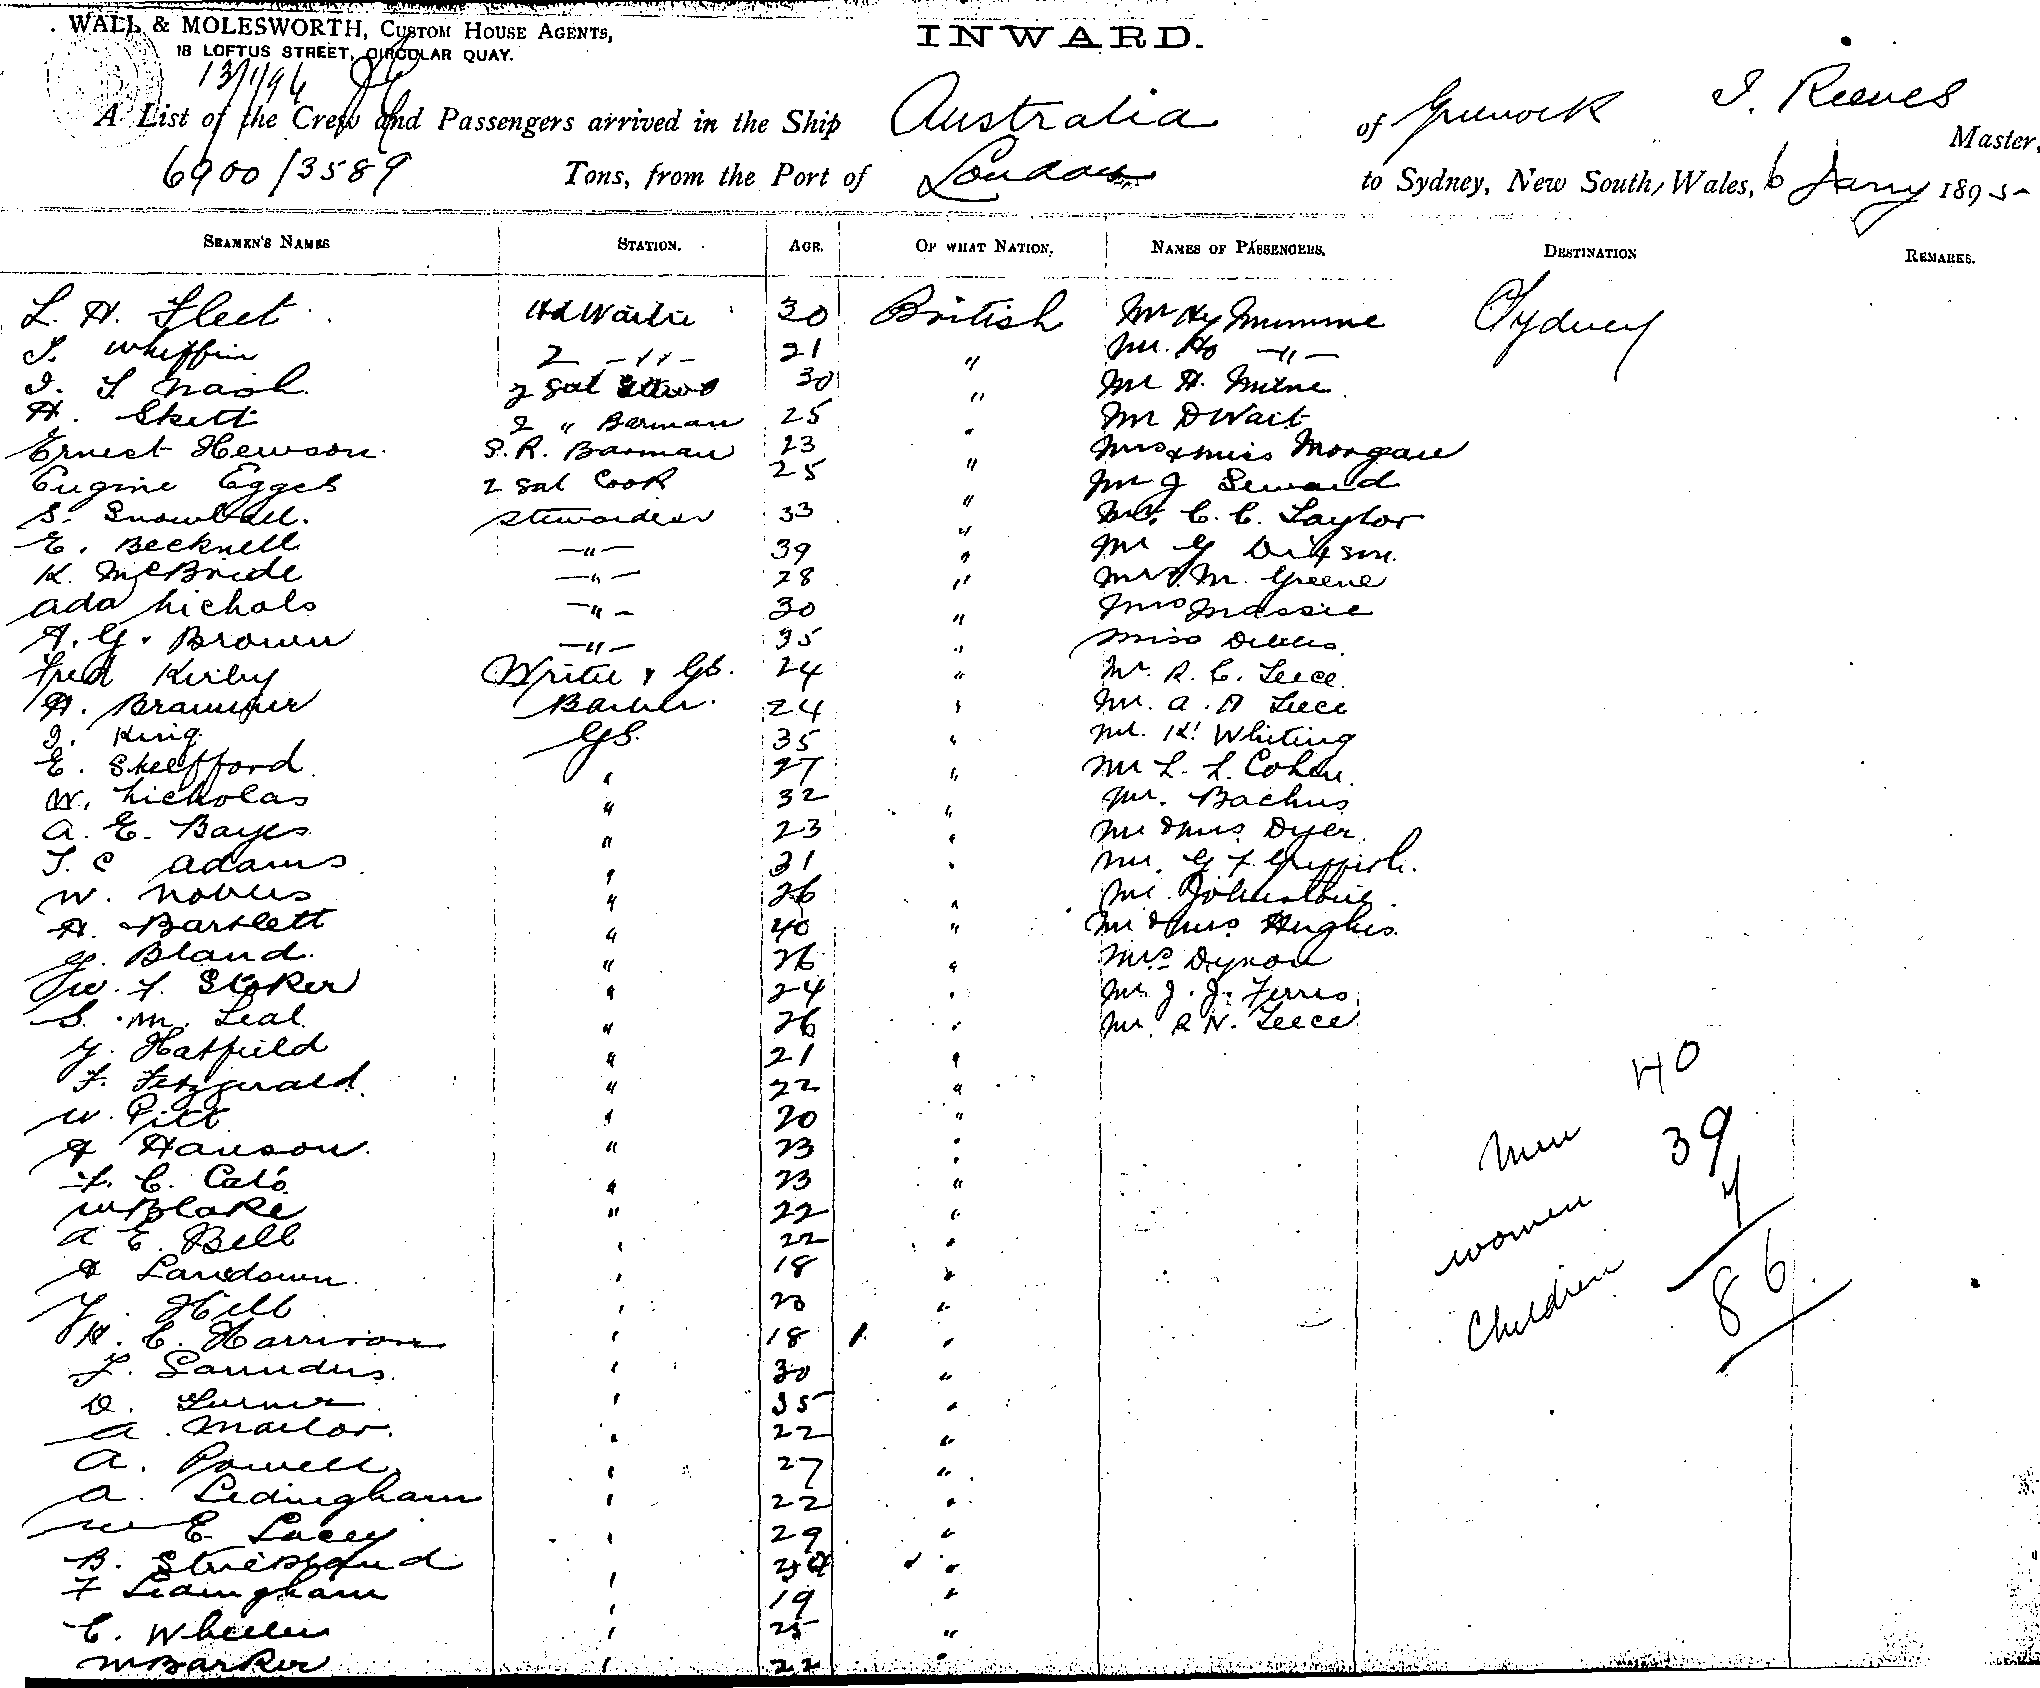 WALL & MOLESWORTH, CUSTOM HOUSE AGENTS,
18 LOFTUS STREET, CIRCULAR QUAY.
INWARD.
A List of the Crew and Passengers arrived in the Ship Australia of Greenock J. Reeves Master,
6900/3589 Tons, from the Port of London to Sydney, New South Wales, 6 Jany 1895
SEAMEN'S NAMES STATION. AGE. OF WHAT NATION. NAMES OF PASSENGERS. DESTINATION REMARKS.
L. H. Fleet Hd Waiter 30 British Mr Hy Sydney
Whiffin 2 -"- 21 " Mr. -"-
Nash 2 Sal 30 " Mr H. Milne
H. Skett 2 " Barman 25 " Mr D Wait
Ernest Hewson S. R. Barman 23 " Mrs & Miss Morgan
Eugine Eggel 2 Sal Cook 25 " Mr J Seward
S. Snowball. Stewardess 33 " C. C. Taylor
E. Becknell -"- 39 " Mr G Dixson.
K. McBride -"- 28 " M. Greene
Ada Nichols -"- 30 " Mrs Massie
A. G. Brown -"- 35 " Miss Dibbs.
Fred Kirby Writer & GS. 24 " Mr. R. C. Leece
H. Brammer Barber. 24 " Mr. A. A Leece
J. King GS. 35 " Mr. K. Whiting
E. Shefford " 27 " Mr L. L. Cohen.
W. Nicholas " 32 " Mr. Bachus
A. E. Bayes " 23 " Mr & Mrs. Dyer
T. C Adams " 31 " Mr. G F Griffith.
W. Nobles " 26 " Mr. Johnstone.
A. Bartlett " 40 " Mr & Mrs Hughes.
G. Bland. " 26 " Mrs Dynon
W. F. Stoker " 24 " Mr. J. J. Ferris
S. M. Leal " 26 " Mr. R N. Leece
G. Hatfield " 21 "
F. Fitzgerald " 22 "
W. Pitt " 20 "
Hanson. " 23 "
F. C. Cato " 23 "
W Blake " 22 "
A E. Bell " 22 "
Landown " 18 "
Hill " 23 "
H. C. Harrison " 18 "
F. Saunders " 30 "
D. Turner " 35 "
A. Mailor. " 22 "
A. Powell " 27 "
A. Ledingham " 22 "
W E. Lacey " 29 "
B. Strickland " "
F Ledingham " 19 "
C. Wheeler " 25 "
W Barker " 22 "
40
Men 39
Women 7
Children 86